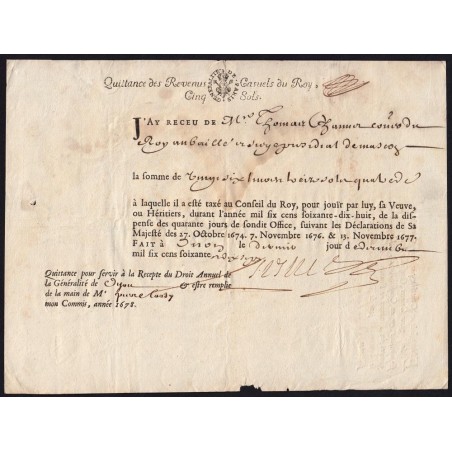 Quittance des Revenus Casuels du Roy.
Cinq Sols.
J'AY RECEU DE Mre Thomas
Roy au bailliage
la somme de vingt six livres treize sols quatre d
à laquelle il a esté taxé au Conseil du Roy, pour joüir par luy, sa Veuve,
ou Héritiers, durant l'année mil six cens soixante-dix-huit, de la dis-
pense des quarante jours de sondit Office, suivant les Déclarations de Sa
Majesté des 27. Octobre 1674. 7. Novembre 1676. & 13. Novembre 1677.
FAIT à Dijon le dernier jour de décembre
mil six cens soixante
Quittance pour servir à la Recepte du Droit Annuel de
la Généralité de Dijon & estre remplie
de la main de Mr Pierre
mon Commis, année 1678.